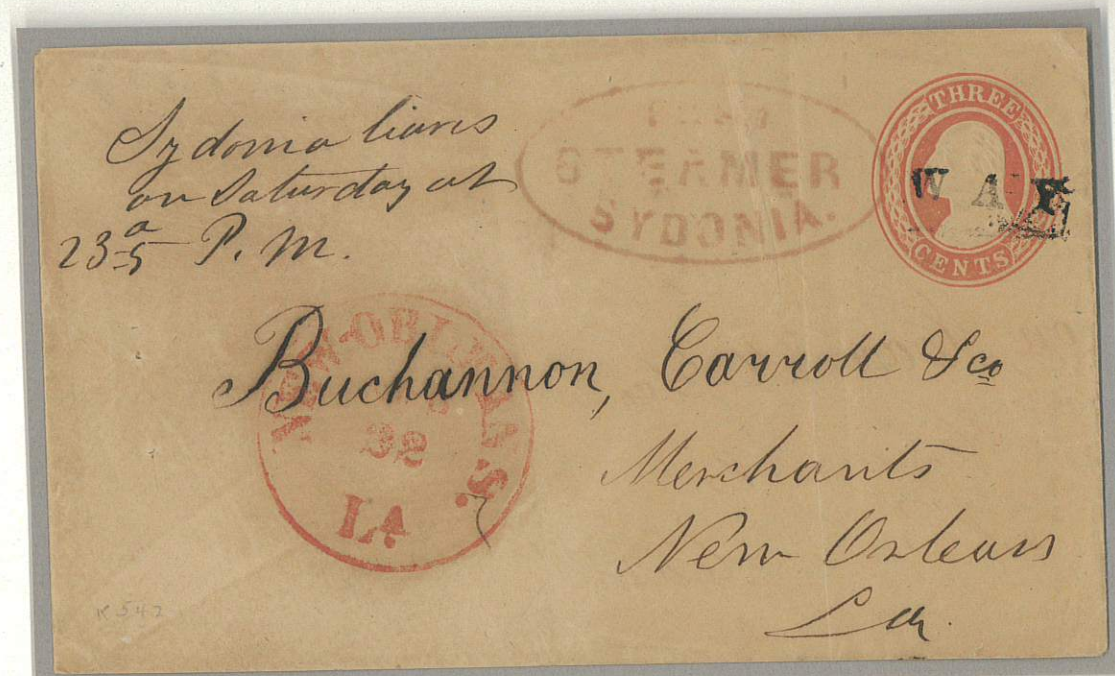 Sydonia leaves
on Saturday at
P. M.
STEAMER
SYDONIA.
THREE
CENTS
WAY
NEW-ORLEANS.
LA
Buchannon, Carroll & Co
Merchants
New Orleans
La.
K 542